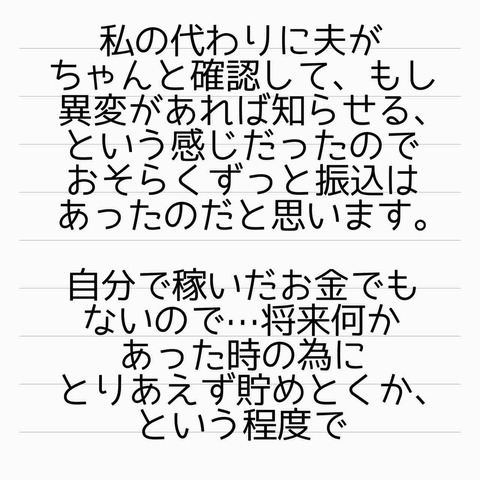 私の代わりに夫が
ちゃんと確認して、もし
異変があれば知らせる、
という感じだったので
おそらくずっと振込は
あったのだと思います。
自分で稼いだお金でも
ないので…将来何か
あった時の為に
とりあえず貯めとくか、
という程度で